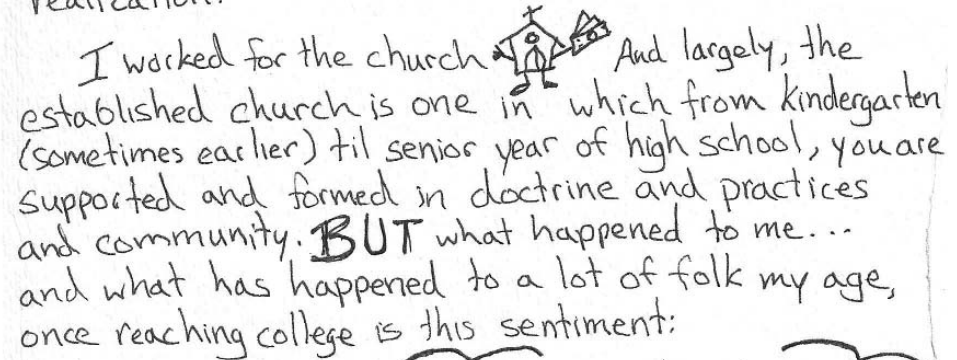 realization.
I worked for the church And largely, the
established church is one in which from kindergarten
(sometimes earlier) til senior year of high school, you are
supported and formed in doctrine and practices
and community. BUT what happened to me...
and what has happened to a lot of folk my age,
once reaching college is this sentiment: